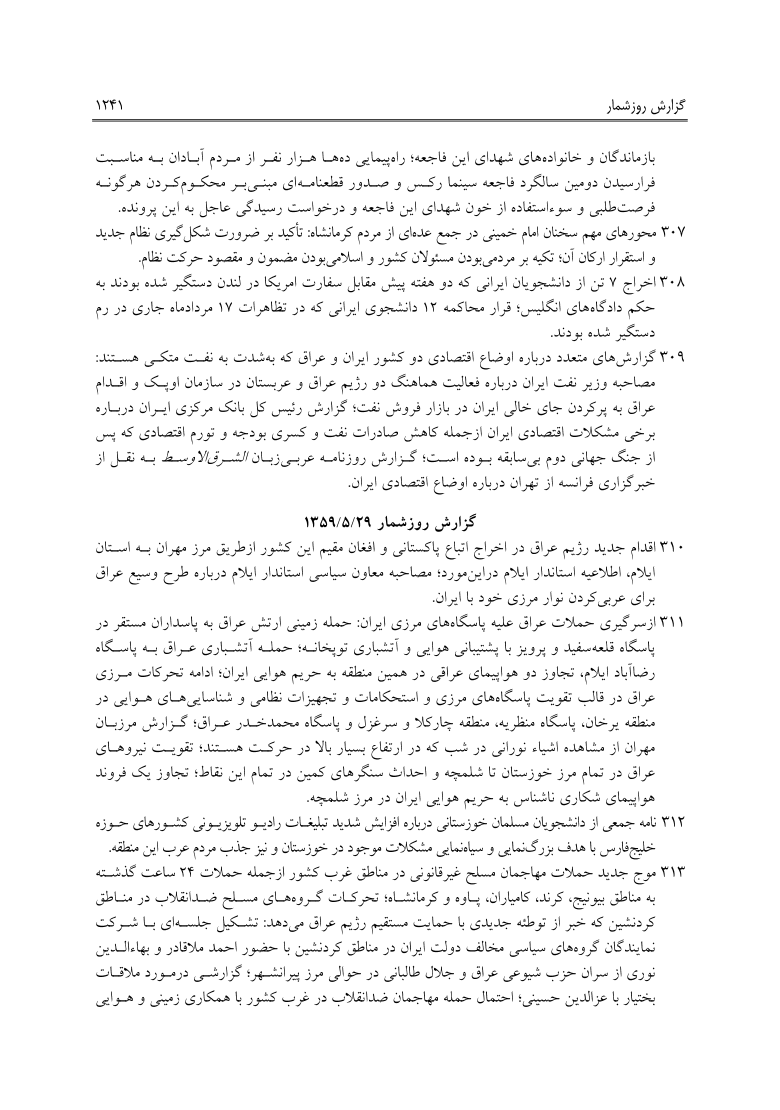 گزارش روزشمار ۱۲۴۱
بازماندگان و خانواده‌های شهدای این فاجعه؛ راه‌پیمایی ده‌ها هزار نفر از مردم آبادان به مناسبت
فرارسیدن دومین سالگرد فاجعه سینما رکس و صدور قطعنامه‌ای مبنی‌بر محکوم‌کردن هرگونه
فرصت‌طلبی و سوءاستفاده از خون شهدای این فاجعه و درخواست رسیدگی عاجل به این پرونده.
۳۰۷ محورهای مهم سخنان امام خمینی در جمع عده‌ای از مردم کرمانشاه: تأکید بر ضرورت شکل‌گیری نظام جدید
و استقرار ارکان آن؛ تکیه بر مردمی‌بودن مسئولان کشور و اسلامی‌بودن مضمون و مقصود حرکت نظام.
۳۰۸ اخراج ۷ تن از دانشجویان ایرانی که دو هفته پیش مقابل سفارت امریکا در لندن دستگیر شده بودند به
حکم دادگاه‌های انگلیس؛ قرار محاکمه ۱۲ دانشجوی ایرانی که در تظاهرات ۱۷ مردادماه جاری در رم
دستگیر شده بودند.
۳۰۹ گزارش‌های متعدد درباره اوضاع اقتصادی دو کشور ایران و عراق که به‌شدت به نفت متکی هستند:
مصاحبه وزیر نفت ایران درباره فعالیت هماهنگ دو رژیم عراق و عربستان در سازمان اوپک و اقدام
عراق به پرکردن جای خالی ایران در بازار فروش نفت؛ گزارش رئیس کل بانک مرکزی ایران درباره
برخی مشکلات اقتصادی ایران ازجمله کاهش صادرات نفت و کسری بودجه و تورم اقتصادی که پس
از جنگ جهانی دوم بی‌سابقه بوده است؛ گزارش روزنامه عربی‌زبان الشرق‌الاوسط به نقل از
خبرگزاری فرانسه از تهران درباره اوضاع اقتصادی ایران.
گزارش روزشمار ۱۳۵۹/۵/۲۹
۳۱۰ اقدام جدید رژیم عراق در اخراج اتباع پاکستانی و افغان مقیم این کشور ازطریق مرز مهران به استان
ایلام، اطلاعیه استاندار ایلام دراین‌مورد؛ مصاحبه معاون سیاسی استاندار ایلام درباره طرح وسیع عراق
برای عربی‌کردن نوار مرزی خود با ایران.
۳۱۱ ازسرگیری حملات عراق علیه پاسگاه‌های مرزی ایران: حمله زمینی ارتش عراق به پاسداران مستقر در
پاسگاه قلعه‌سفید و پرویز با پشتیبانی هوایی و آتشباری توپخانه؛ حمله آتشباری عراق به پاسگاه
رضاآباد ایلام، تجاوز دو هواپیمای عراقی در همین منطقه به حریم هوایی ایران؛ ادامه تحرکات مرزی
عراق در قالب تقویت پاسگاه‌های مرزی و استحکامات و تجهیزات نظامی و شناسایی‌های هوایی در
منطقه یرخان، پاسگاه منظریه، منطقه چارکلا و سرغزل و پاسگاه محمدخدر عراق؛ گزارش مرزبان
مهران از مشاهده اشیاء نورانی در شب که در ارتفاع بسیار بالا در حرکت هستند؛ تقویت نیروهای
عراق در تمام مرز خوزستان تا شلمچه و احداث سنگرهای کمین در تمام این نقاط؛ تجاوز یک فروند
هواپیمای شکاری ناشناس به حریم هوایی ایران در مرز شلمچه.
۳۱۲ نامه جمعی از دانشجویان مسلمان خوزستانی درباره افزایش شدید تبلیغات رادیو تلویزیونی کشورهای حوزه
خلیج‌فارس با هدف بزرگ‌نمایی و سیاه‌نمایی مشکلات موجود در خوزستان و نیز جذب مردم عرب این منطقه.
۳۱۳ موج جدید حملات مهاجمان مسلح غیرقانونی در مناطق غرب کشور ازجمله حملات ۲۴ ساعت گذشته
به مناطق بیونیج، کرند، کامیاران، پاوه و کرمانشاه؛ تحرکات گروه‌های مسلح ضدانقلاب در مناطق
کردنشین که خبر از توطئه جدیدی با حمایت مستقیم رژیم عراق می‌دهد: تشکیل جلسه‌ای با شرکت
نمایندگان گروه‌های سیاسی مخالف دولت ایران در مناطق کردنشین با حضور احمد ملاقادر و بهاءالدین
نوری از سران حزب شیوعی عراق و جلال طالبانی در حوالی مرز پیرانشهر؛ گزارشی درمورد ملاقات
بختیار با عزالدین حسینی؛ احتمال حمله مهاجمان ضدانقلاب در غرب کشور با همکاری زمینی و هوایی